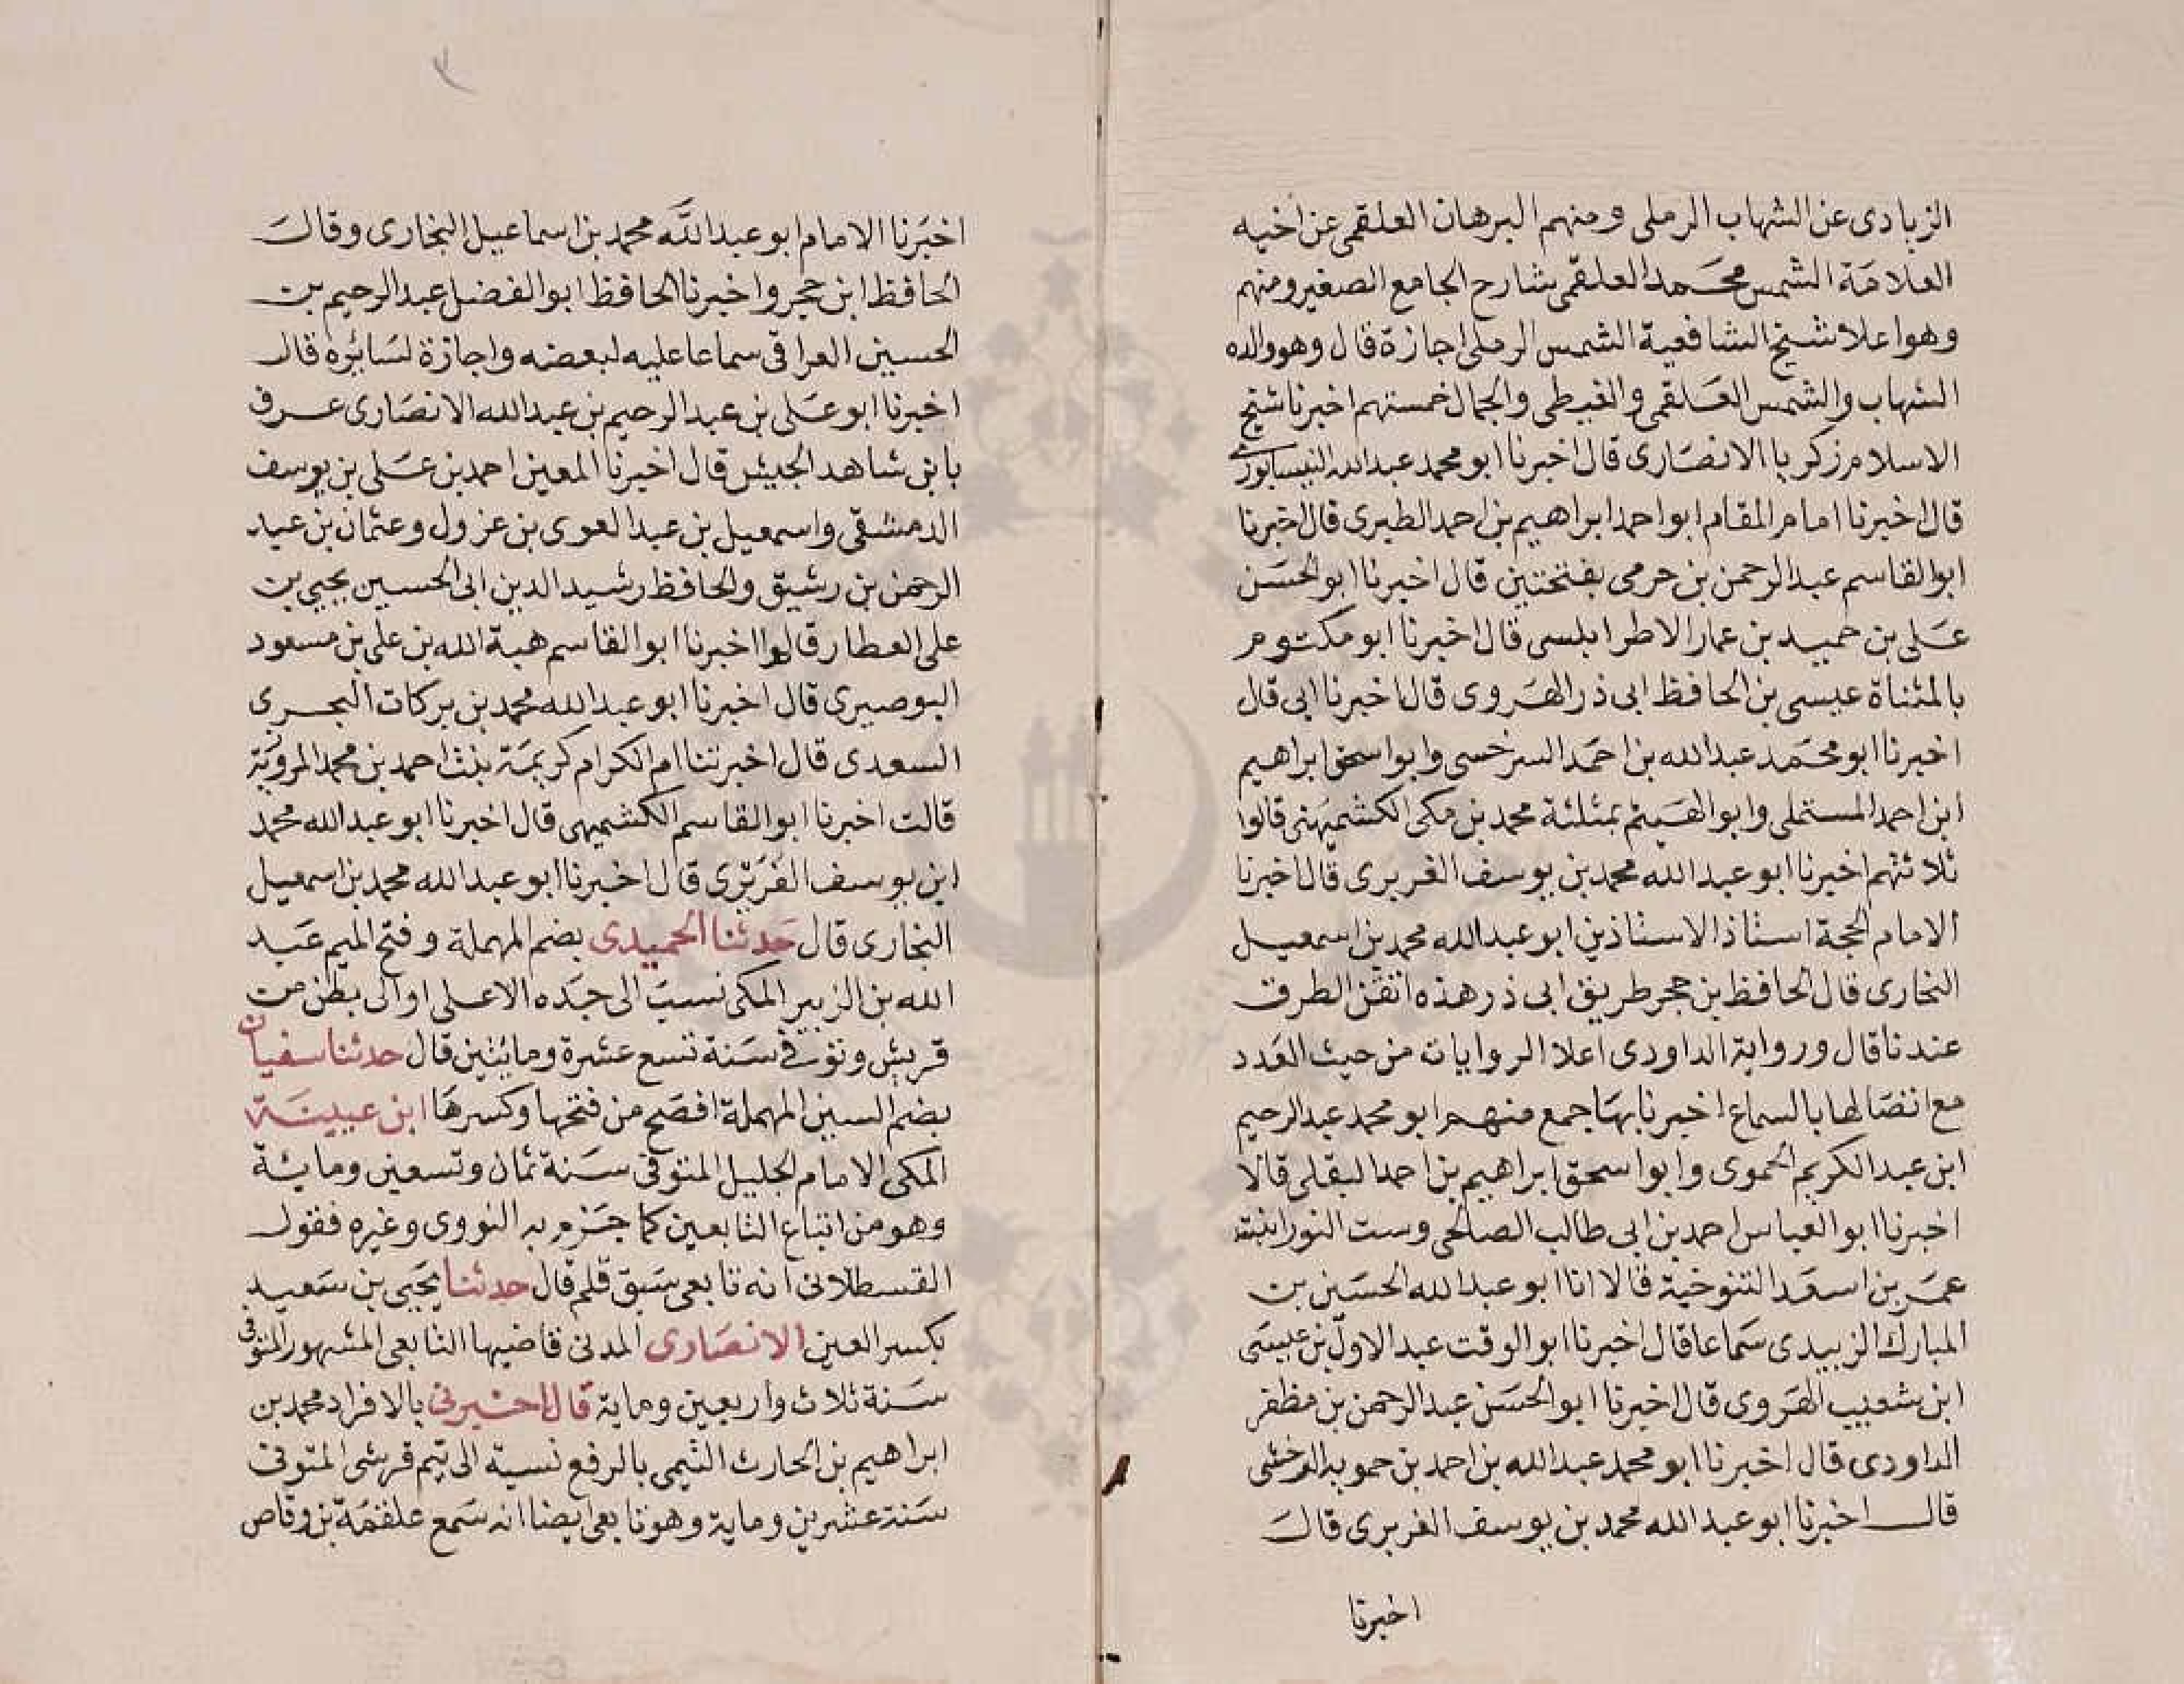 الزيادى عن الشهاب الرملى ومنهم البرهان العلقمى عن اخيه
العلامة الشمس محمد العلقمى شارح الجامع الصغير ومنهم
وهو اعلا شيخ الشافعية الشمس الرملى اجازة قال وهو والده
الشهاب والشمس العلقمى والغيطى والجمال خمستهم اخبرنا شيخ
الاسلام زكريا الانصارى قال اخبرنا ابو محمد عبد الله النيسابورى
قال اخبرنا امام المقام ابو احمد ابراهيم بن احمد الطبرى قال اخبرنا
ابو القاسم عبد الرحمن بن حرمى بفتحتين قال اخبرنا ابو الحسن
على بن حميد بن عمار الاطرابلسى قال اخبرنا ابو مكتوم
بالمثناة عيسى بن الحافظ ابى ذر الهروى قال اخبرنا ابى قال
اخبرنا ابو محمد عبد الله بن احمد السرخسى وابو اسحق ابراهيم
ابن احمد المستملى وابو الهيثم بمثلثة محمد بن مكى الكشميهنى قالوا
ثلاثتهم اخبرنا ابو عبد الله محمد بن يوسف الفربرى قال اخبرنا
الامام الحجة استاذ الاستاذين ابو عبد الله محمد بن اسمعيل
البخارى قال الحافظ بن حجر طريق ابى ذر هذه اتقن الطرق
عندنا قال ورواية الداودى اعلا الروايات من حيث العدد
مع اتصالها بالسماع اخبرنا بها جمع منهم ابو محمد عبد الرحيم
ابن عبد الكريم الحموى وابو اسحق ابراهيم بن احمد البقلى قالا
اخبرنا ابو العباس احمد بن ابى طالب الصالحى وست النور ابنته
عمر بن اسعد التنوخية قالا انا ابو عبد الله الحسين بن
المبارك الزبيدى سماعا قال اخبرنا ابو الوقت عبد الاول بن عيسى
ابن شعيب الهروى قال اخبرنا ابو الحسن عبد الرحمن بن مظفر
الداودى قال اخبرنا ابو محمد عبد الله بن احمد بن حمويه
قال اخبرنا ابو عبد الله محمد بن يوسف الفربرى قال
اخبرنا
اخبرنا الامام ابو عبد الله محمد بن اسماعيل البخارى وقال
الحافظ ابن حجر واخبرنا الحافظ ابو الفضل عبد الرحيم بن
الحسين العراقى سماعا عليه لبعضه واجازة لسائره قال
اخبرنا ابو على بن عبد الرحيم بن عبد الله الانصارى عرف
بابن شاهد الجيش قال اخبرنا المعين احمد بن على بن يوسف
الدمشقى واسمعيل بن عبد القوى بن عزول وعثمان بن عبد
الرحمن بن رشيق والحافظ رشيد الدين ابى الحسين يحيى بن
على العطار قالوا اخبرنا ابو القاسم هبة الله بن على بن مسعود
البوصيرى قال اخبرنا ابو عبد الله محمد بن بركات البحرى
السعدى قال اخبرتنا ام الكرام كريمة بنت احمد بن محمد المروية
قالت اخبرنا ابو القاسم الكشميهى قال اخبرنا ابو عبد الله محمد
ابن يوسف الفربرى قال اخبرنا ابو عبد الله محمد بن اسمعيل
البخارى قال حدثنا الحميدى بضم المهملة وفتح الميم عبد
الله بن الزبير المكى نسب الى جده الاعلى او الى بطن من
قريش وتوفى سنة تسع عشرة ومايتين قال حدثنا سفيان
بضم السين المهملة افصح من فتحها وكسرها ابن عيينة
المكى الامام الجليل المتوفى سنة ثمان وتسعين وماية
وهو من اتباع التابعين كما جزم به النووى وغيره فقول
القسطلانى انه تابعى سبق قلم قال حدثنا يحيى بن سعيد
بكسر العين الانصارى المدنى قاضيها التابعى المشهور المتوفى
سنة ثلاث واربعين وماية قال اخبرنى بالافراد محمد بن
ابراهيم بن الحارث التيمى بالرفع نسبة الى تيم قريش المتوفى
سنة عشرين وماية وهو تابعى ايضا انه سمع علقمة بن وقاص